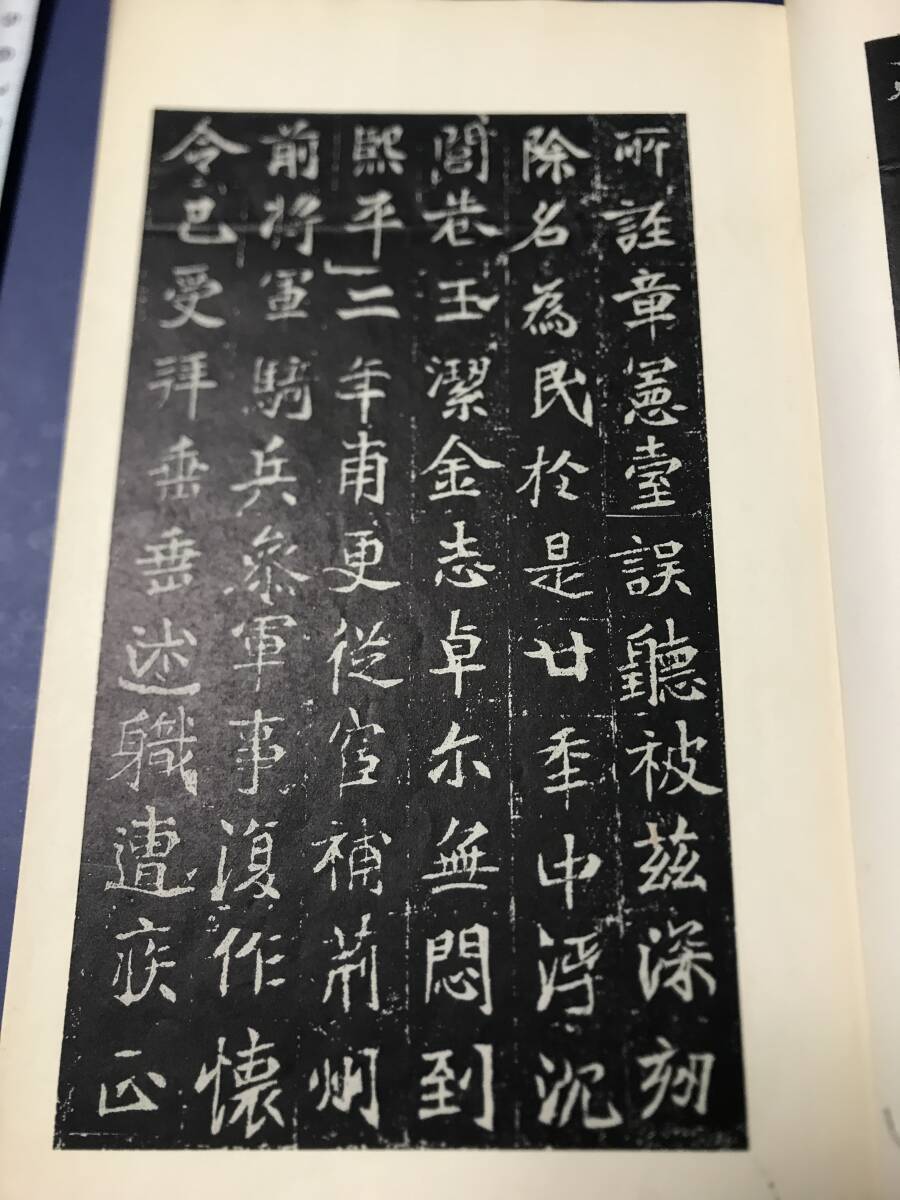 所誣章憲臺誤聽被茲深劾
除名為民於是廿年中浮沉
閭巷玉潔金志卓尔無悶到
熙平二年甫更從宦補荊州
前將軍騎兵參軍事復作懷
令已受拜垂垂述職遭疾正